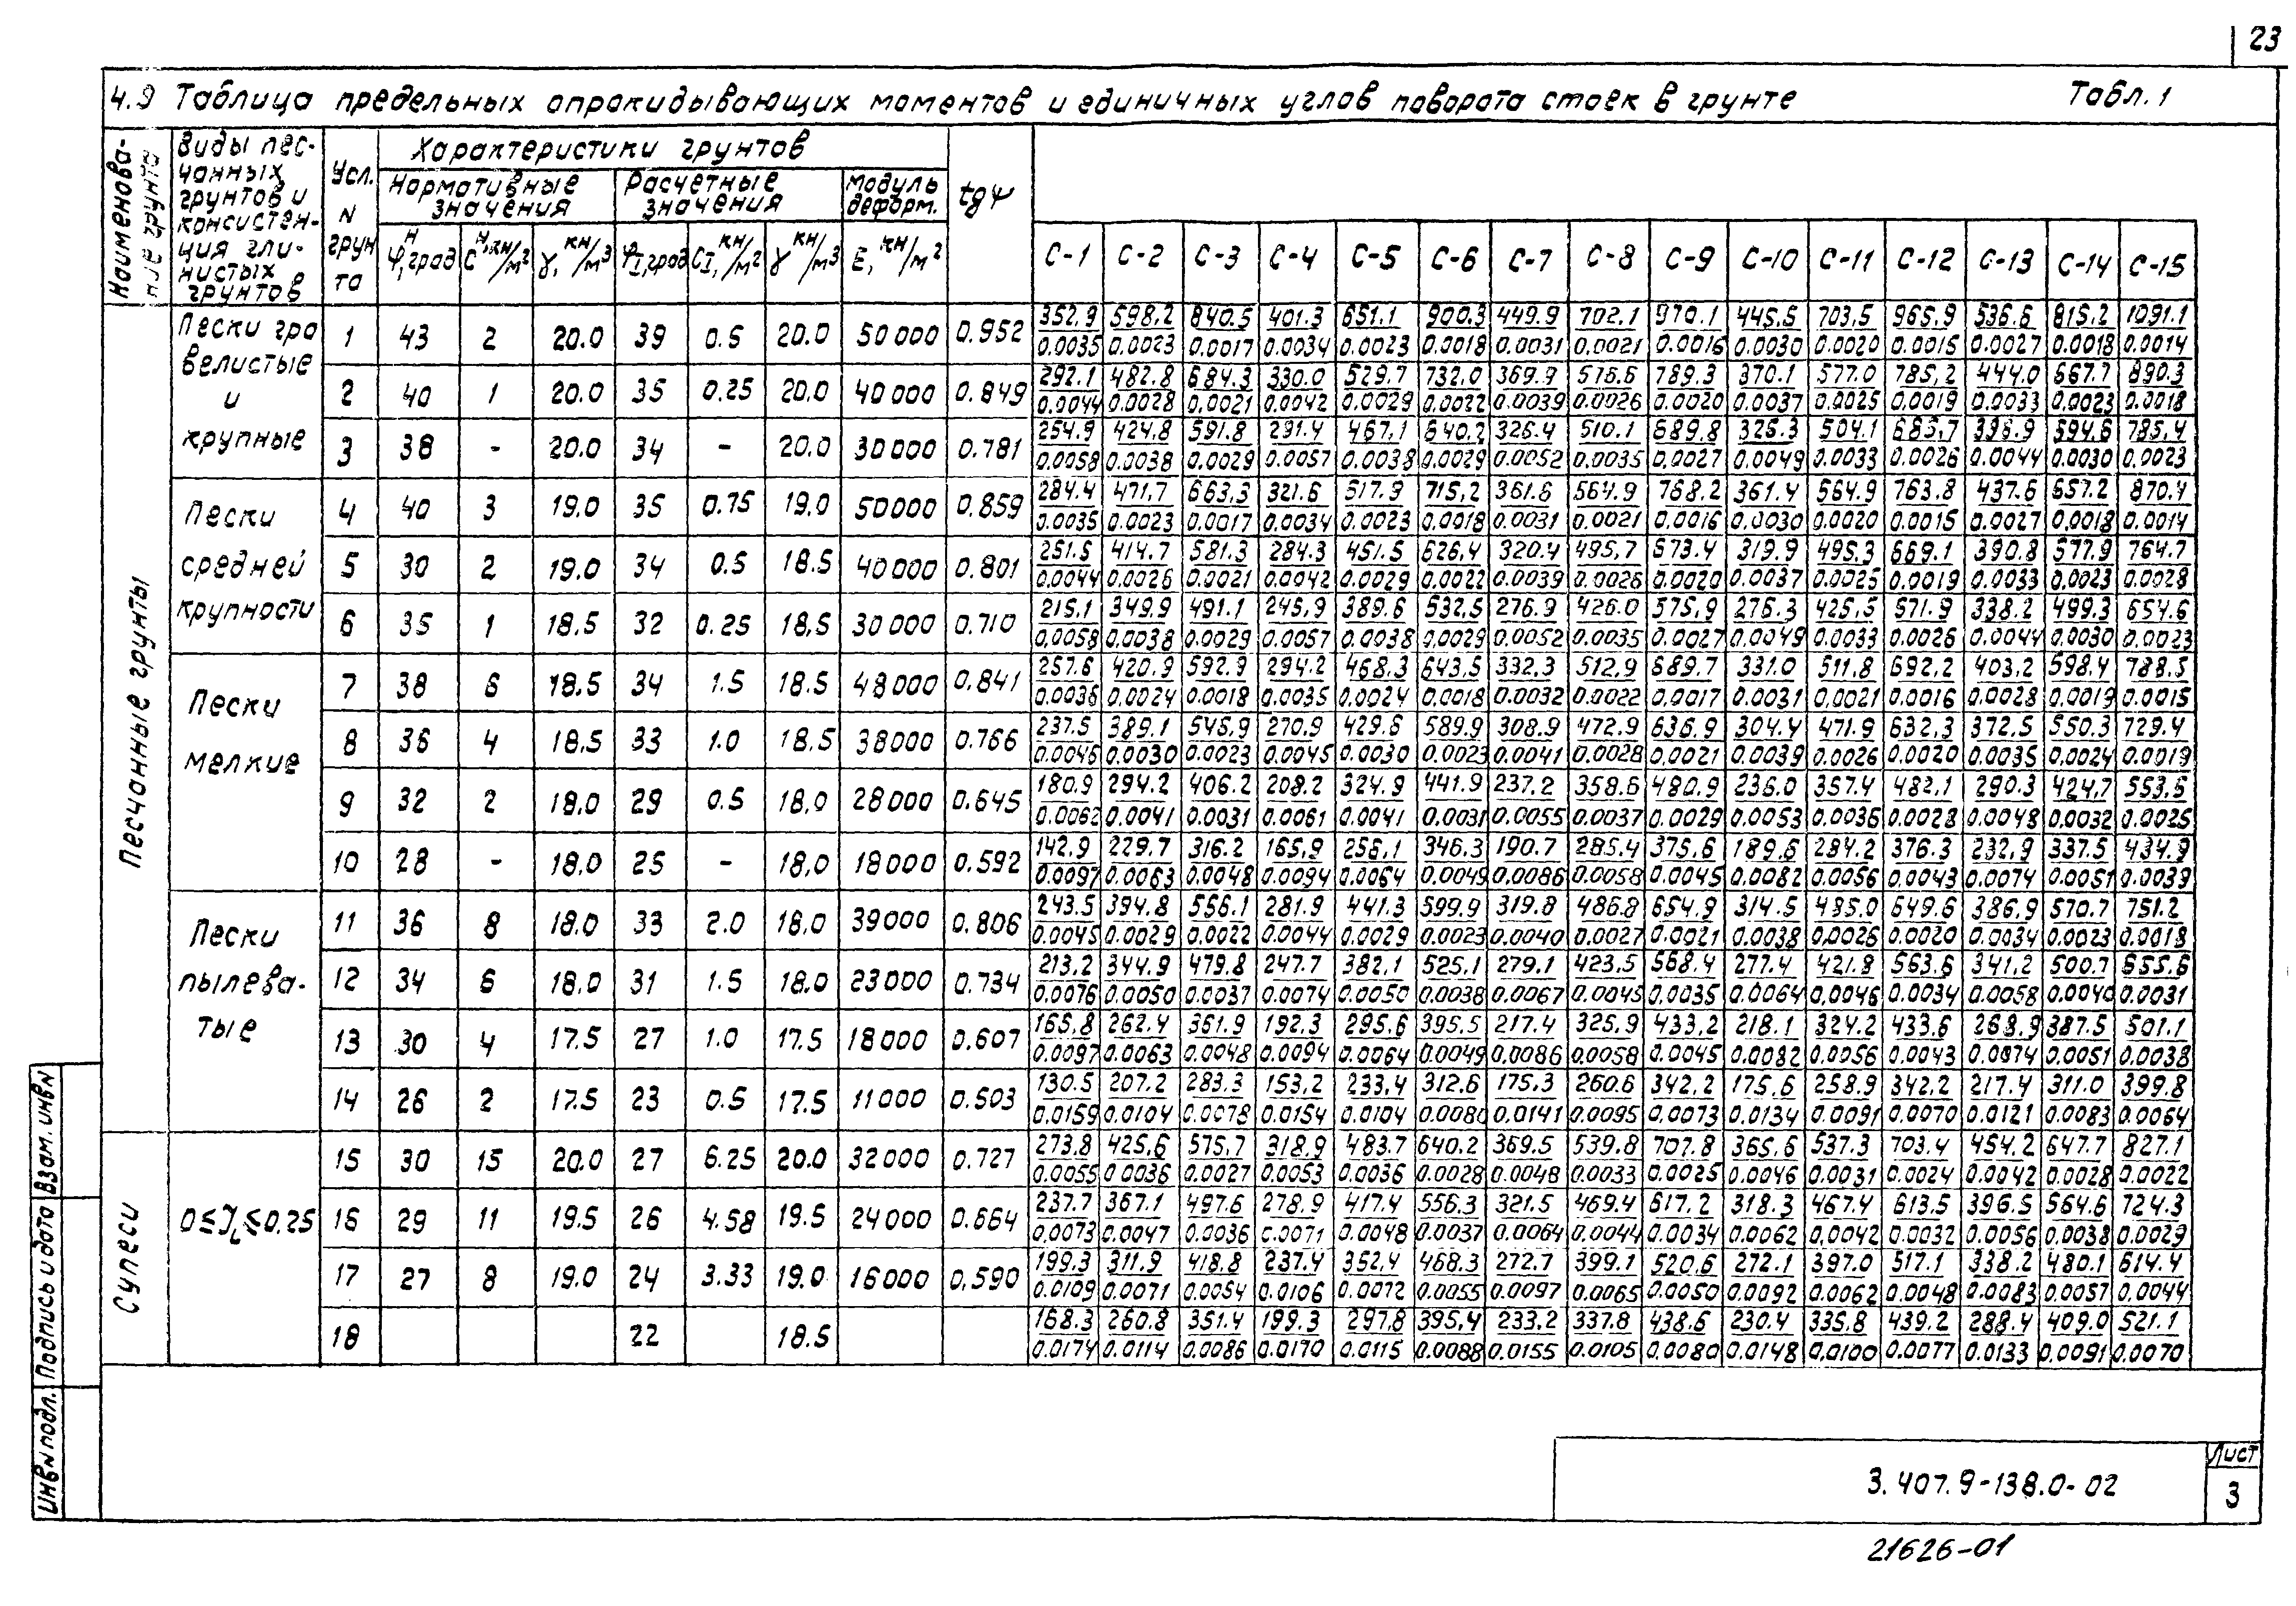 23
4.9 Таблица предельных опрокидывающих моментов и единичных углов поворота стоек в грунте Табл.1
Наименова-
ние грунта
Виды пес-
чанных
грунтов и
консистен-
ция гли-
нистых
грунтов
Усл.
N
грун
та
Характеристики грунтов
Нормативные значения
Расчетные значения
Модуль деформ.
tgψ
φᴴ, град Cᴴ, кн/м² γ, кн/м³ φI, град CI, кн/м² γ кн/м³ E, кн/м²
С-1 С-2 С-3 С-4 С-5 С-6 С-7 С-8 С-9 С-10 С-11 С-12 С-13 С-14 С-15
Песчанные грунты
Пески гра
велистые
и
крупные
1 43 2 20.0 39 0.5 20.0 50000 0.952
352.9 598.2 840.5 401.3 651.1 900.3 449.9 702.1 970.1 445.5 703.5 965.9 536.6 815.2 1091.1
0.0035 0.0023 0.0017 0.0034 0.0023 0.0018 0.0031 0.0021 0.0016 0.0030 0.0020 0.0015 0.0027 0.0018 0.0014
2 40 1 20.0 35 0.25 20.0 40000 0.849
292.1 482.8 684.3 330.0 529.7 732.0 369.9 576.6 789.3 370.1 577.0 785.2 444.0 667.7 890.3
0.0044 0.0028 0.0021 0.0042 0.0029 0.0022 0.0039 0.0026 0.0020 0.0037 0.0025 0.0019 0.0033 0.0023 0.0018
3 38 - 20.0 34 - 20.0 30000 0.781
254.9 424.8 591.8 291.4 467.1 640.2 326.4 510.1 689.8 325.3 504.1 685.7 396.9 594.6 785.4
0.0058 0.0038 0.0029 0.0057 0.0038 0.0029 0.0052 0.0035 0.0027 0.0049 0.0033 0.0026 0.0044 0.0030 0.0023
Пески
средней
крупности
4 40 3 19.0 35 0.75 19.0 50000 0.859
284.4 471.7 663.3 321.6 517.9 715.2 361.6 564.9 768.2 361.4 564.9 763.8 437.6 657.2 870.4
0.0035 0.0023 0.0017 0.0034 0.0023 0.0018 0.0031 0.0021 0.0016 0.0030 0.0020 0.0015 0.0027 0.0018 0.0014
5 30 2 19.0 34 0.5 18.5 40000 0.801
251.5 414.7 581.3 284.3 451.5 626.4 320.4 495.7 673.4 319.9 495.3 669.1 390.8 577.9 764.7
0.0044 0.0026 0.0021 0.0042 0.0029 0.0022 0.0039 0.0026 0.0020 0.0037 0.0025 0.0019 0.0033 0.0023 0.0028
6 35 1 18.5 32 0.25 18.5 30000 0.710
215.1 349.9 491.1 245.9 389.6 532.5 276.9 426.0 575.9 276.3 425.5 571.9 338.2 499.3 654.6
0.0058 0.0038 0.0029 0.0057 0.0038 0.0029 0.0052 0.0035 0.0027 0.0049 0.0033 0.0026 0.0044 0.0030 0.0023
Пески
мелкие
7 38 6 18.5 34 1.5 18.5 48000 0.841
257.6 420.9 592.9 294.2 468.3 643.5 332.3 512.9 689.7 331.0 511.8 692.2 403.2 598.4 788.5
0.0036 0.0024 0.0018 0.0035 0.0024 0.0018 0.0032 0.0022 0.0017 0.0031 0.0021 0.0016 0.0028 0.0019 0.0015
8 36 4 18.5 33 1.0 18.5 38000 0.766
237.5 389.1 545.9 270.9 429.6 589.9 308.9 472.9 636.9 304.4 471.9 632.3 372.5 550.3 729.4
0.0046 0.0030 0.0023 0.0045 0.0030 0.0023 0.0041 0.0028 0.0021 0.0039 0.0026 0.0020 0.0035 0.0024 0.0019
9 32 2 18.0 29 0.5 18.0 28000 0.645
180.9 294.2 406.2 208.2 324.9 441.9 237.2 358.6 480.9 236.0 357.4 482.1 290.3 424.7 553.5
0.0062 0.0041 0.0031 0.0061 0.0041 0.0031 0.0055 0.0037 0.0029 0.0053 0.0036 0.0028 0.0048 0.0032 0.0025
10 28 - 18.0 25 - 18.0 18000 0.592
142.9 229.7 316.2 165.9 256.1 346.3 190.7 285.4 375.6 189.6 284.2 376.3 232.9 337.5 434.9
0.0097 0.0063 0.0048 0.0094 0.0064 0.0049 0.0086 0.0058 0.0045 0.0082 0.0056 0.0043 0.0074 0.0051 0.0039
Пески
пылева-
тые
11 36 8 18.0 33 2.0 18.0 39000 0.806
243.5 394.8 556.1 281.9 441.3 599.9 319.8 486.8 654.9 314.5 485.0 649.6 386.9 570.7 751.2
0.0045 0.0029 0.0022 0.0044 0.0029 0.0023 0.0040 0.0027 0.0021 0.0038 0.0026 0.0020 0.0034 0.0023 0.0018
12 34 6 18.0 31 1.5 18.0 23000 0.734
213.2 344.9 479.8 247.7 382.1 525.1 279.1 423.5 568.4 277.4 421.8 563.6 341.2 500.7 655.6
0.0076 0.0050 0.0037 0.0074 0.0050 0.0038 0.0067 0.0045 0.0035 0.0064 0.0046 0.0034 0.0058 0.0040 0.0031
13 30 4 17.5 27 1.0 17.5 18000 0.607
165.8 262.4 361.9 192.3 295.6 395.5 217.4 325.9 433.2 218.1 324.2 433.6 268.9 387.5 501.1
0.0097 0.0063 0.0048 0.0094 0.0064 0.0049 0.0086 0.0058 0.0045 0.0082 0.0056 0.0043 0.0074 0.0051 0.0038
14 26 2 17.5 23 0.5 17.5 11000 0.503
130.5 207.2 283.3 153.2 233.4 312.6 175.3 260.6 342.2 175.6 258.9 342.2 217.4 311.0 399.8
0.0159 0.0104 0.0078 0.0154 0.0104 0.0080 0.0141 0.0095 0.0073 0.0134 0.0091 0.0070 0.0121 0.0083 0.0064
Супеси
0≤JL≤0.25
15 30 15 20.0 27 6.25 20.0 32000 0.727
273.8 425.6 575.7 318.9 483.7 640.2 369.5 539.8 707.8 365.6 537.3 703.4 454.2 647.7 827.1
0.0055 0.0036 0.0027 0.0053 0.0036 0.0028 0.0048 0.0033 0.0025 0.0046 0.0031 0.0024 0.0042 0.0028 0.0022
16 29 11 19.5 26 4.58 19.5 24000 0.664
237.7 367.1 497.6 278.9 417.4 556.3 321.5 469.4 617.2 318.3 467.4 613.5 396.5 564.6 724.3
0.0073 0.0047 0.0036 0.0071 0.0048 0.0037 0.0064 0.0044 0.0034 0.0062 0.0042 0.0032 0.0056 0.0038 0.0029
17 27 8 19.0 24 3.33 19.0 16000 0.590
199.3 311.9 418.8 237.4 352.4 468.3 272.7 399.1 520.6 272.1 397.0 517.1 338.2 480.1 614.4
0.0109 0.0071 0.0054 0.0106 0.0072 0.0055 0.0097 0.0065 0.0050 0.0092 0.0062 0.0048 0.0083 0.0057 0.0044
18 22 18.5
168.3 260.8 351.4 199.3 297.8 395.4 233.2 337.8 438.6 230.4 335.8 439.2 288.4 409.0 521.1
0.0174 0.0114 0.0086 0.0170 0.0115 0.0088 0.0155 0.0105 0.0080 0.0148 0.0100 0.0077 0.0133 0.0091 0.0070
Инв.N подл. Подпись и дата Взам. инв.N
3.407.9-138.0-02
Лист
3
21626-01